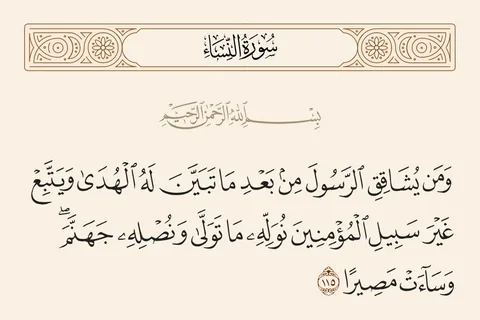 سُورَةُ النِّسَاءِ
بِسْمِ اللَّهِ الرَّحْمَٰنِ الرَّحِيمِ
وَمَن يُشَاقِقِ الرَّسُولَ مِنۢ بَعْدِ مَا تَبَيَّنَ لَهُ الْهُدَىٰ وَيَتَّبِعْ
غَيْرَ سَبِيلِ الْمُؤْمِنِينَ نُوَلِّهِۦ مَا تَوَلَّىٰ وَنُصْلِهِۦ جَهَنَّمَ ۖ
وَسَآءَتْ مَصِيرًا ١١٥